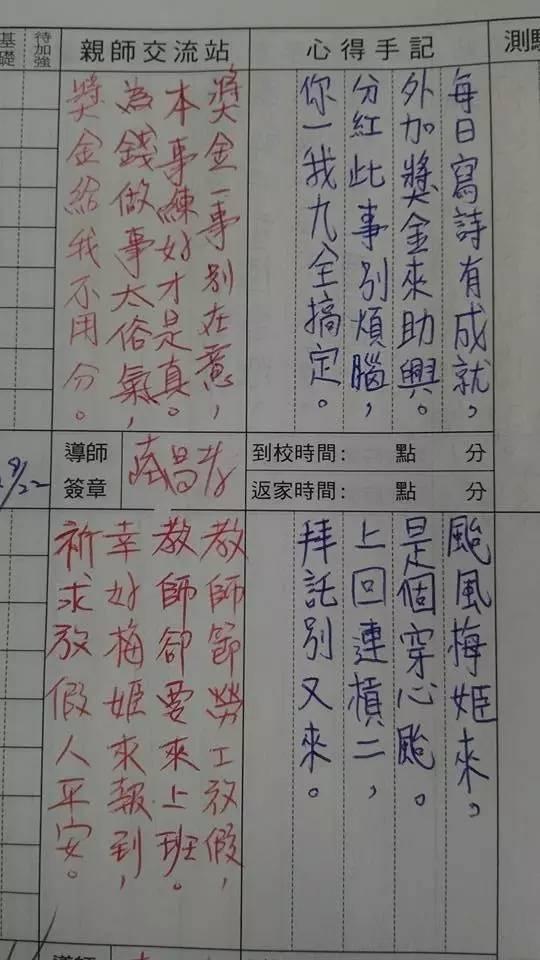 基礎
待加強
親師交流站
心得手記
測驗
每日寫詩有成就，
外加獎金來助興。
分紅此事別煩腦，
你一我九全搞定。
獎金一事別在意，
本事練好才是真。
為錢做事太俗氣，
獎金給我不用分。
9/22
導師
簽章
到校時間： 點 分
返家時間： 點 分
颱風梅姬來。
是個穿心颱。
上回連槓二，
拜託別又來。
教師節勞工放假，
教師卻要來上班。
幸好梅姬來報到，
祈求放假人平安。
導師